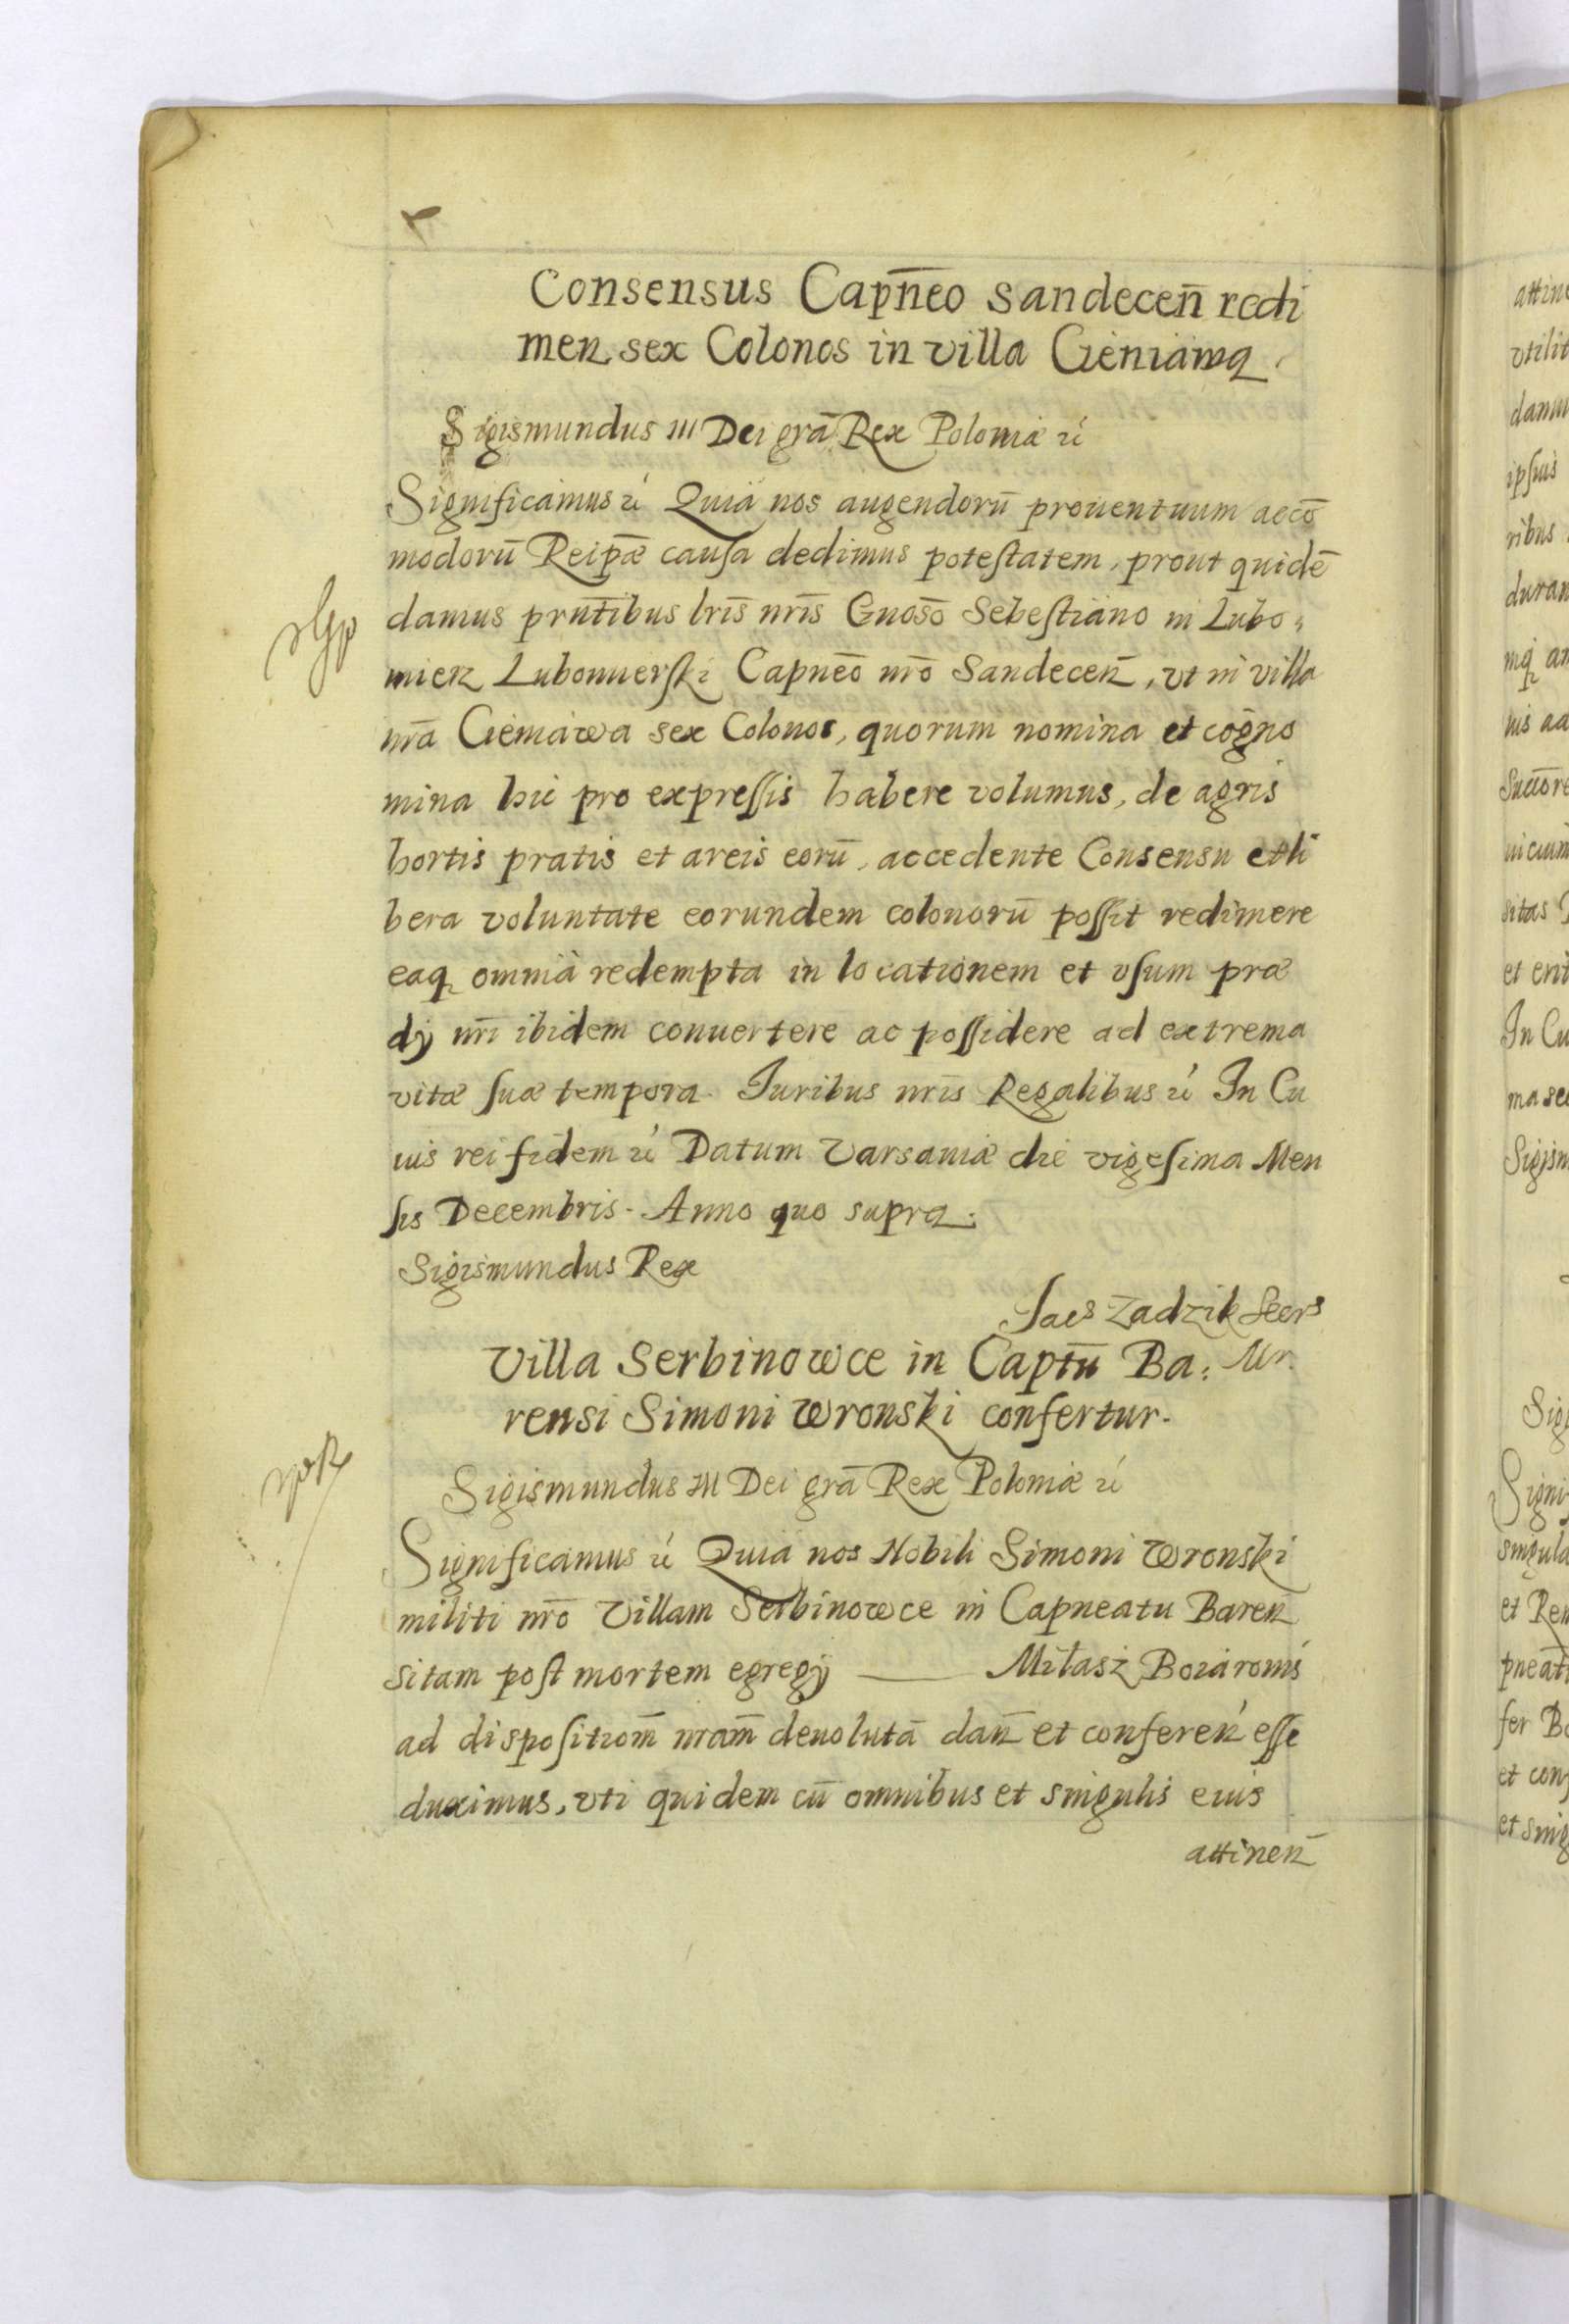 Consensus Capn̄eo Sandecen̄ redi
men sex Colonos in villa Cieniawa.
Sigismundus III Dei grā Rex Poloniæ ze
Significamus ze Quia nos augendorū prouentuum accō
modorū Reipæ causa dedimus potestatem, prout quidē
damus prn̄tibus lris̄ nris̄ Gnosō Sebestiano in Lubo„
mierz Lubomierski Capneō nrō Sandecen̄, vt in villa
nrā Cieniawa sex Colonos, quorum nomina et cogn̄o
mina hic pro expressis habere volumus, de agris
hortis pratis et areis eorū, accedente Consensu et li
bera voluntate eorundem colonorū possit redimere
eaq omnia redempta in locationem et vsum præ
dij nrī ibidem conuertere ac possidere ad extrema
vitæ suæ tempora. Iuribus nris̄ Regalibus ze In Cu
ius rei fidem ze Datum Varsauiæ die vigesima Men
sis Decembris. Anno quo supra.
Sigismundus Rex
Iacs Zadzik Secrs
Mr.
Villa Serbinowce in Captū Ba:
rensi Simoni Wronski confertur.
Sigismundus III Dei grā Rex Poloniæ ze
Significamus ze Quia nos Nobili Simoni Wronski
militi nrō Villam Serbinowce in Capneatu Baren̄
sitam post mortem egregij —— Miłasz Boiaronis
ad dispositiom̄ nram̄ deuolutā dan̄ et conferen̄ esse
duximus, vti quidem cū omnibus et singulis eius
attinen̄